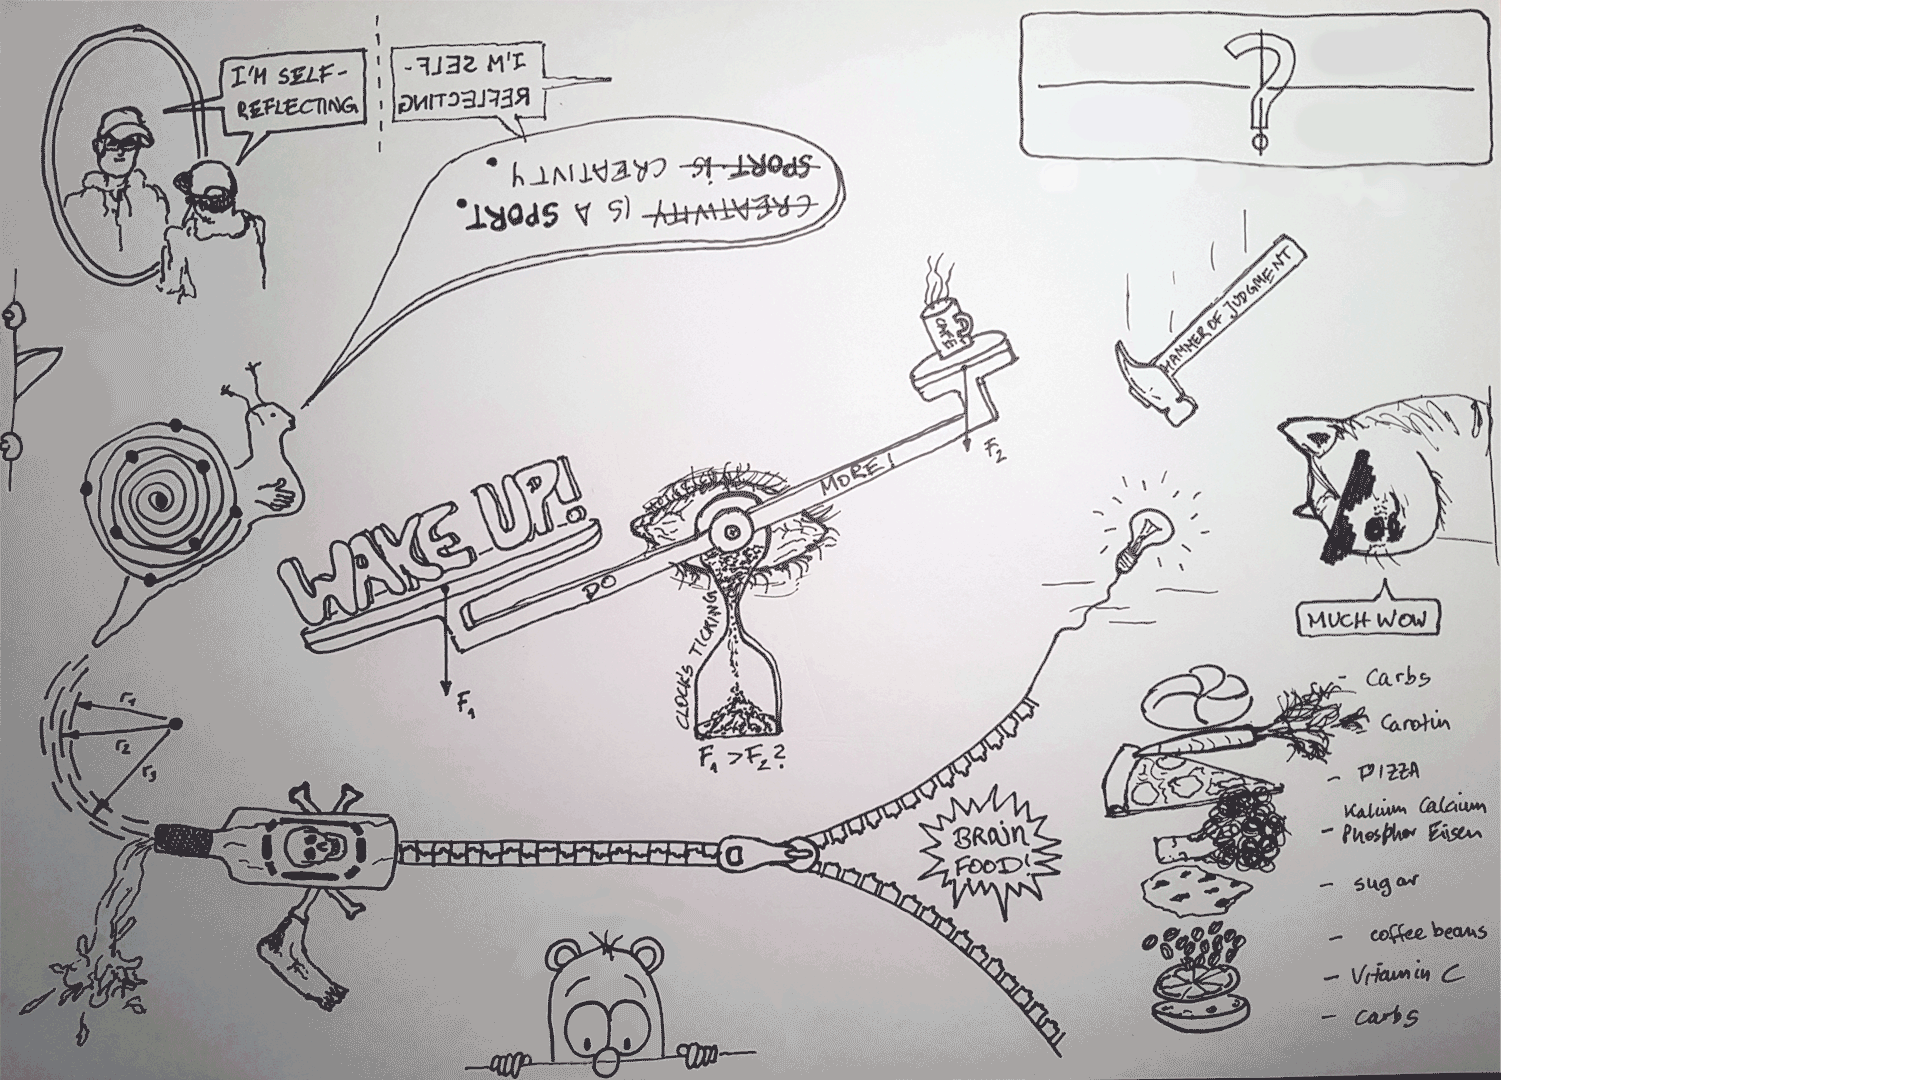 I'M SELF-
REFLECTING
I'M SELF-
REFLECTING
?
CREATIVITY IS A SPORT.
SPORT IS CREATIVITY.
CAFÉ
HAMMER OF JUDGMENT
F2
MORE!
WAKE UP!
DO
CLOCK'S TICKING
F1
F1 > F2?
MUCH WOW
r1
r2
r3
BRAIN
FOOD!
- Carbs
Carotin
- PIZZA
Kalium Calcium
- Phosphor Eisen
- sugar
- coffee beans
- Vitamin C
- carbs